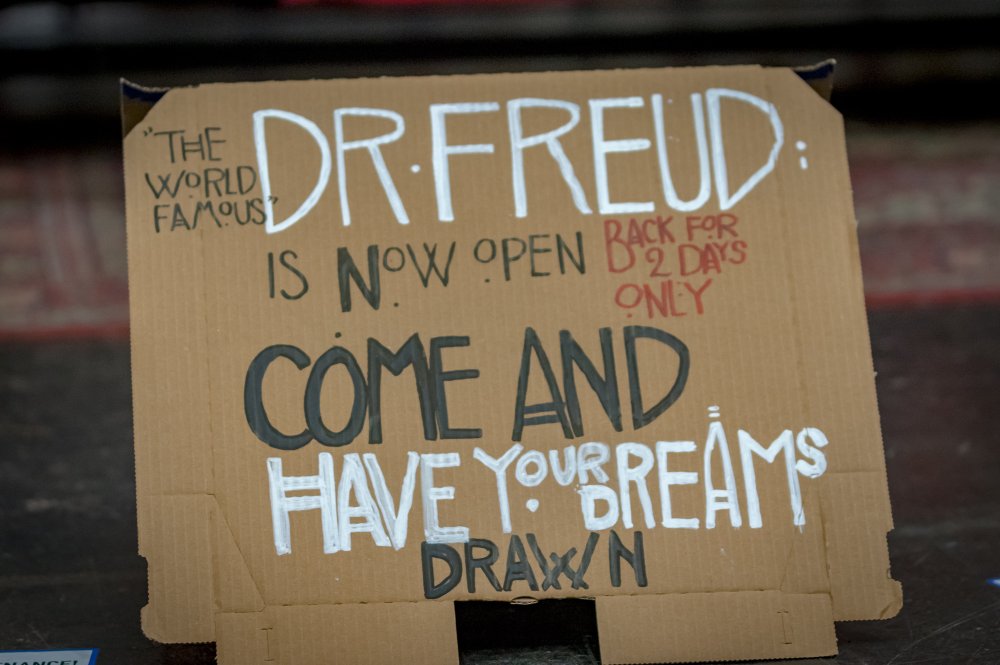 "THE
WORLD
FAMOUS"
DR. FREUD:
IS NOW OPEN
BACK FOR
2 DAYS
ONLY
COME AND
HAVE YOUR DREAMS
DRAWN